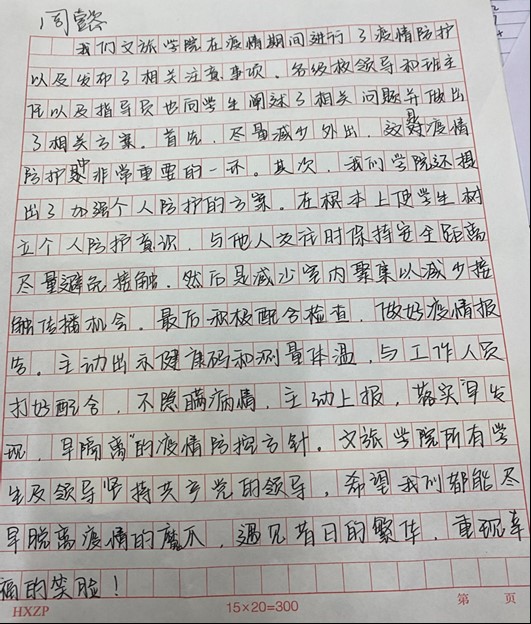 周懿
我们文旅学院在疫情期间进行了疫情防护
以及发布了相关注意事项。各级校领导和班主
任以及指导员也向学生阐述了相关问题并做出
了相关方案。首先，尽量减少外出，这是疫情
防护中非常重要的一环。其次，我们学院还提
出了加强个人防护的方案。在根本上使学生树
立个人防护意识，与他人交往时保持安全距离
尽量避免接触。然后是减少室内聚集以减少接
触传播机会。最后积极配合检查，做好疫情报
告。主动出示健康码和测量体温，与工作人员
打好配合，不隐瞒病情，主动上报，落实“早发
现，早隔离”的疫情防控方针。文旅学院所有学
生及领导坚持共产党的领导，希望我们都能尽
早脱离疫情的魔爪，遇见昔日的繁华，重现幸
福的笑脸！
HXZP 15×20=300 第 页